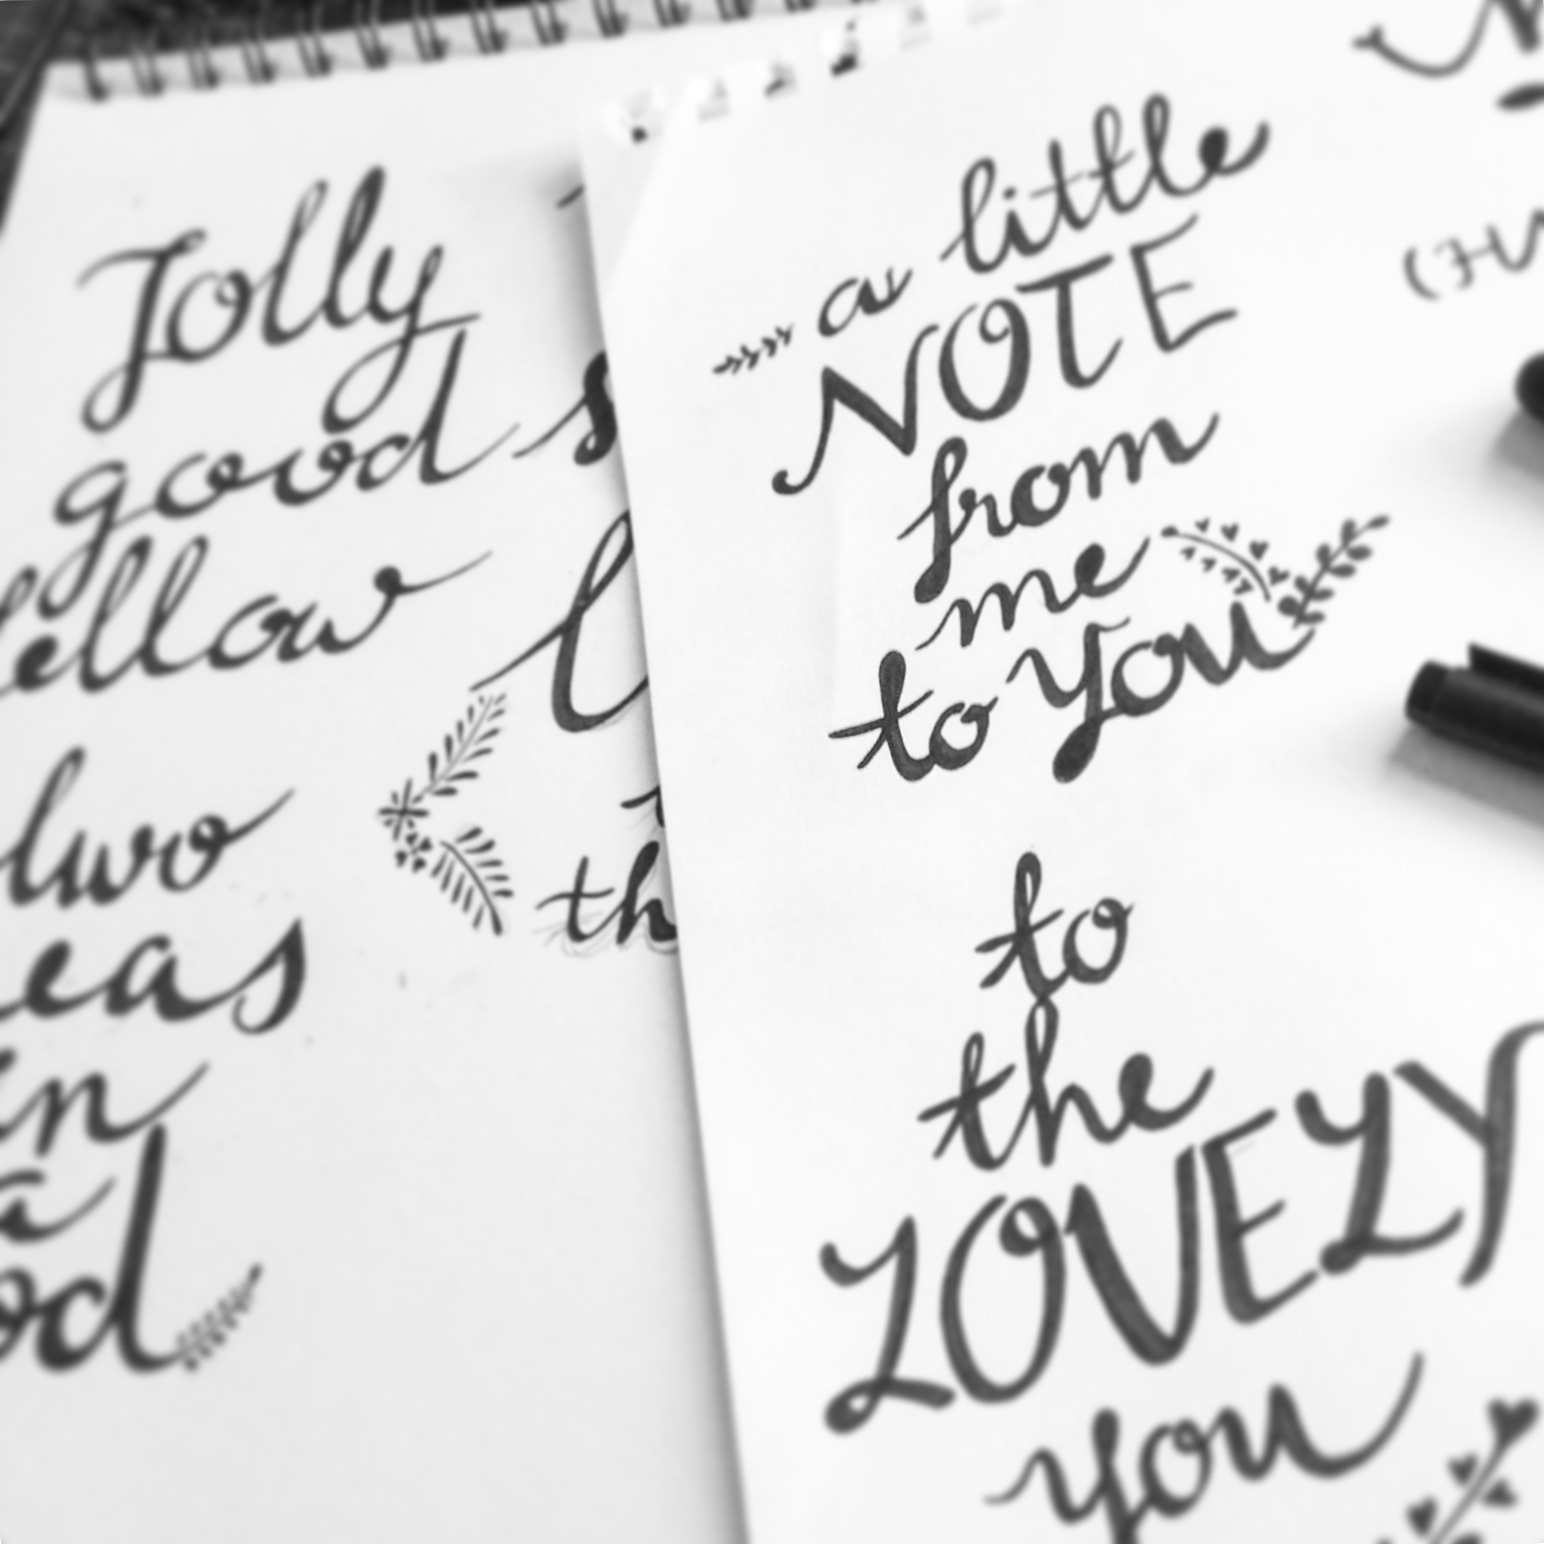 Jolly
good
fellow
two
in
a
th
a little
NOTE
from
me
to you
to
the
LOVELY
you